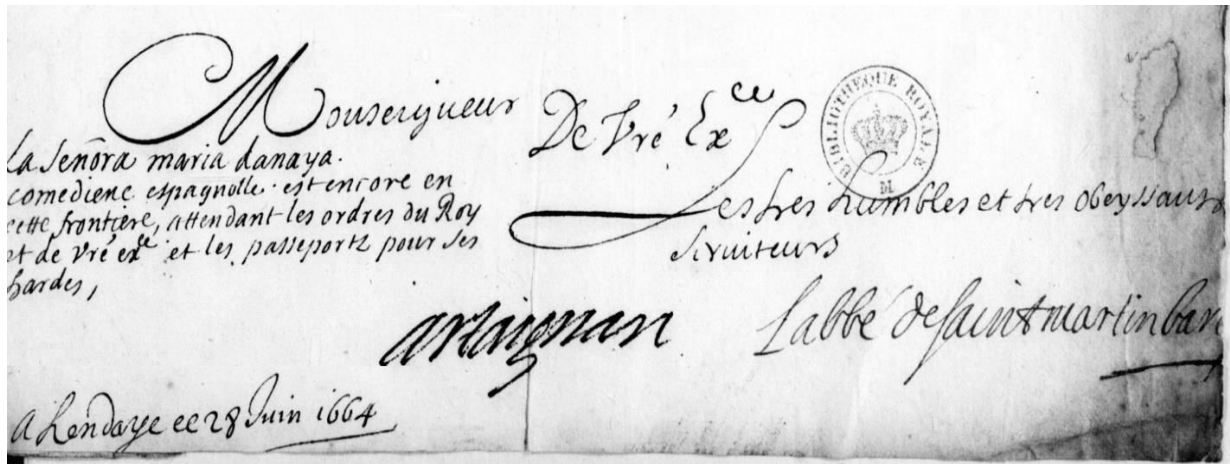 Monseigneur
De Vré Ex^ce
La señora maria danaya.
comediene espagnolle est encore en
cette frontiere, attendant les ordres du Roy
et de Vré ex^ce et les passeportz pour ses
hardes,
Les tres humbles et tres obeyssans
serviteurs
artaignan
Labbé de saint martin bar
A hendaye ce 28 Juin 1664
BIBLIOTHEQUE ROYALE